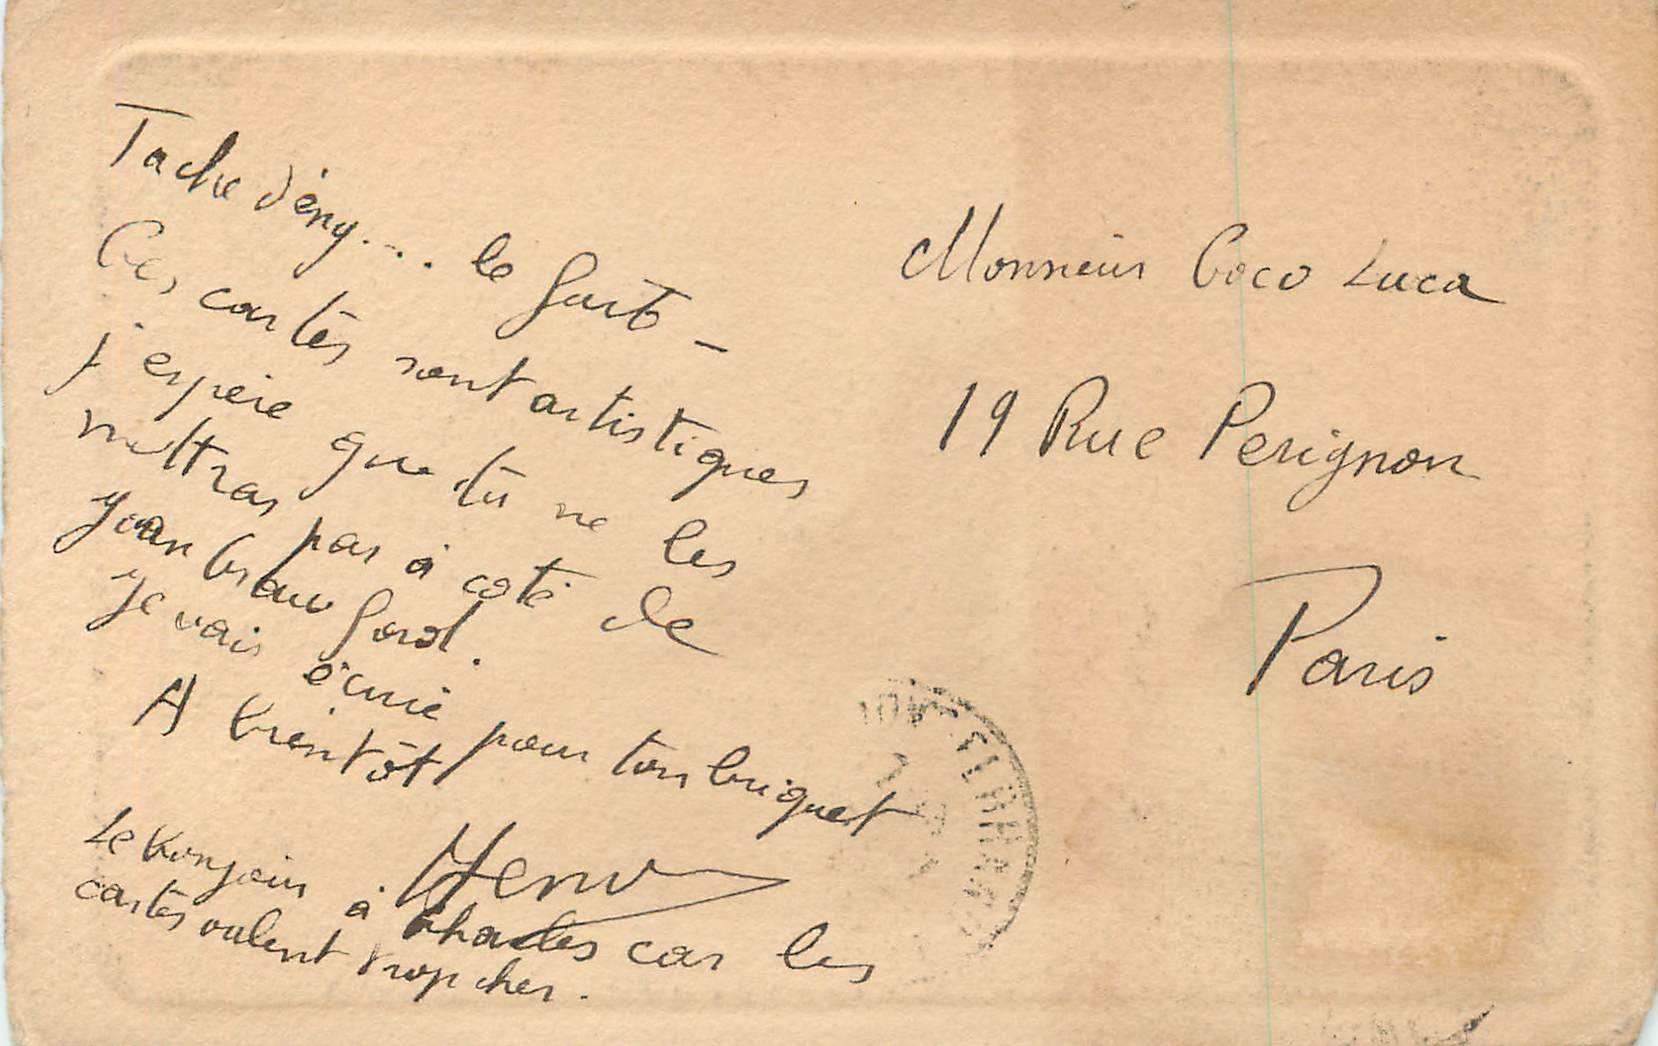 Tache d'
... le
Ces cartes sont artistiques
j'espère que tu ne les
mettras pas à coté de
Je vais écrire pour ton briquet
A bientôt
Le bonjour à Charles car les
cartes valent trop cher.
Monsieur Coco Luca
19 Rue Perignon
Paris